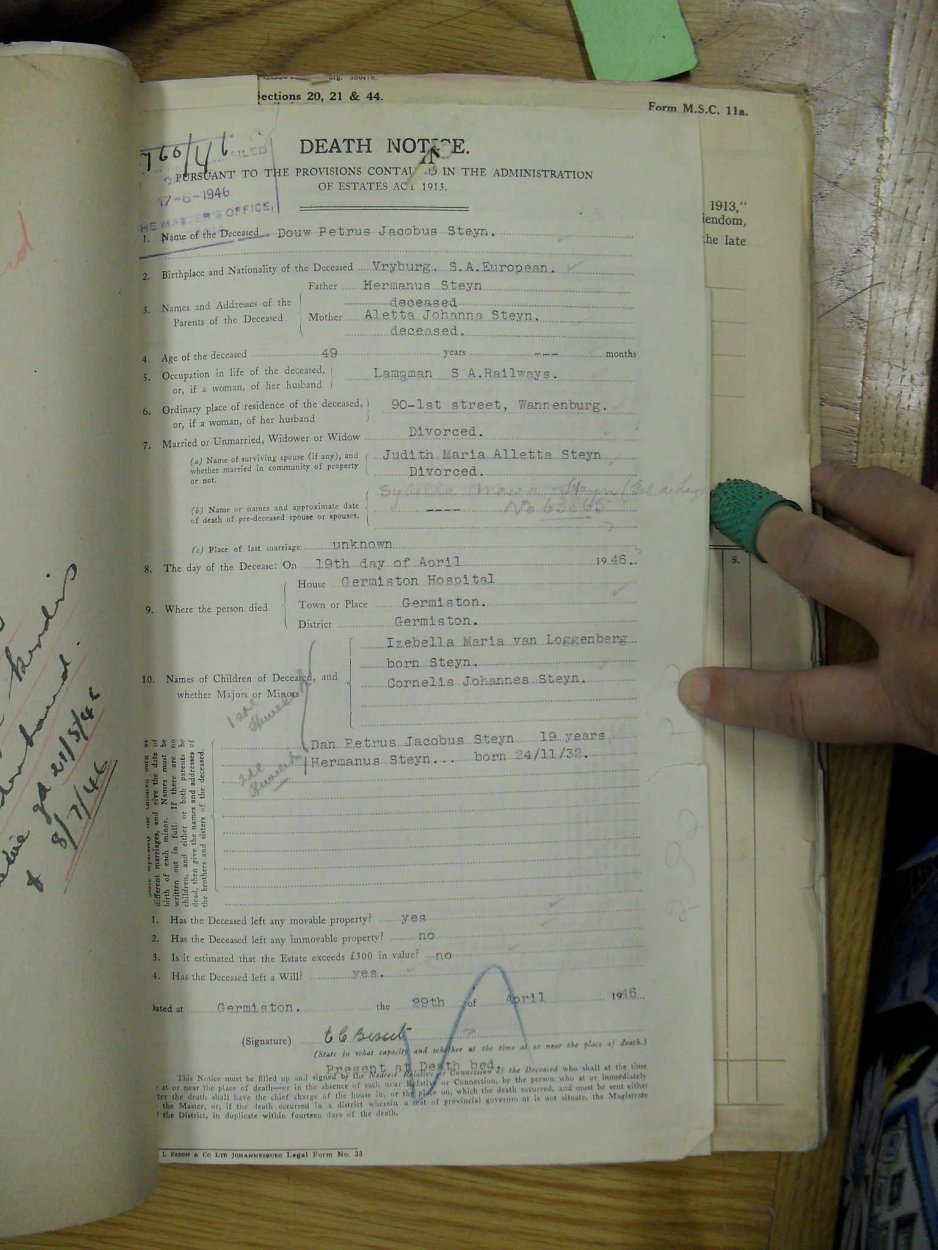 ections 20, 21 & 44.
Form M.S.C. 11a.
766/46
FILED
17-6-1946
HE MASTER'S OFFICE,
DEATH NOTICE.
IN
PURSUANT TO THE PROVISIONS CONTAINED IN THE ADMINISTRATION
OF ESTATES ACT 1913.
1913,"
iendom,
the late
1. Name of the Deceased Douw Petrus Jacobus Steyn.
2. Birthplace and Nationality of the Deceased Vryburg. S.A.European.
3. Names and Addresses of the Parents of the Deceased
Father Hermanus Steyn
deceased
Mother Aletta Johanna Steyn.
deceased.
4. Age of the deceased 49 years --- months
5. Occupation in life of the deceased, or, if a woman, of her husband Lamgman S A.Railways.
6. Ordinary place of residence of the deceased, or, if a woman, of her husband 90-1st street, Wannenburg.
7. Married or Unmarried, Widower or Widow Divorced.
(a) Name of surviving spouse (if any), and whether married in community of property or not.
Judith Maria Alletta Steyn
Divorced.
Sybella Maria Steyn
No 63645
(b) Name or names and approximate date of death of pre-deceased spouse or spouses. ----
(c) Place of last marriage unknown
8. The day of the Decease: On 19th day of April 1946.
9. Where the person died
House Germiston Hospital
Town or Place Germiston.
District Germiston.
10. Names of Children of Deceased, and whether Majors or Minors
Izebella Maria van Loggenberg
born Steyn.
Cornelis Johannes Steyn.
1ste Huwelik
Dan Petrus Jacobus Steyn 19 years
Hermanus Steyn... born 24/11/32.
2de Huwelik
different marriages, and give the date of
birth of each minor. Names must be
written out in full. If there are no
children, and either or both parents be
dead, then give the names and addresses of
the brothers and sisters of the deceased.
21/5/46
8/7/46
1. Has the Deceased left any movable property? yes
2. Has the Deceased left any immovable property? no
3. Is it estimated that the Estate exceeds £300 in value? no
4. Has the Deceased left a Will? yes.
Dated at Germiston. the 29th of April 1946
(Signature)
(State in what capacity and whether at the time at or near the place of death.)
Present at Death bed.
This Notice must be filled up and signed by the Nearest Relative or Connection of the Deceased who shall at the time
at or near the place of death—or in the absence of such near Relative or Connection, by the person who at or immediately
ter the death shall have the chief charge of the house in, or the place on, which the death occurred, and must be sent either
the Master, or, if the death occurred in a district wherein a seat of provincial government is not situate, the Magistrate
f the District, in duplicate within fourteen days of the death.
L ESSON & CO LTD JOHANNESBURG Legal Form No. 33
S.